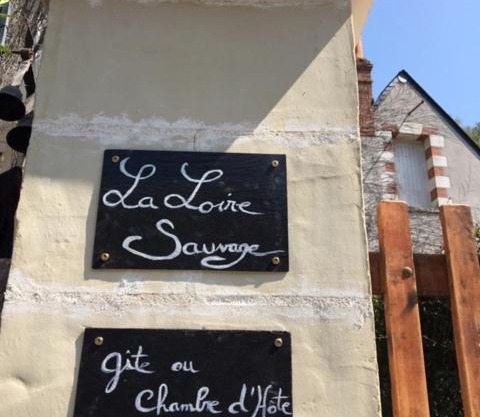 La Loire
Sauvage
gîte ou
chambre d'Hôte